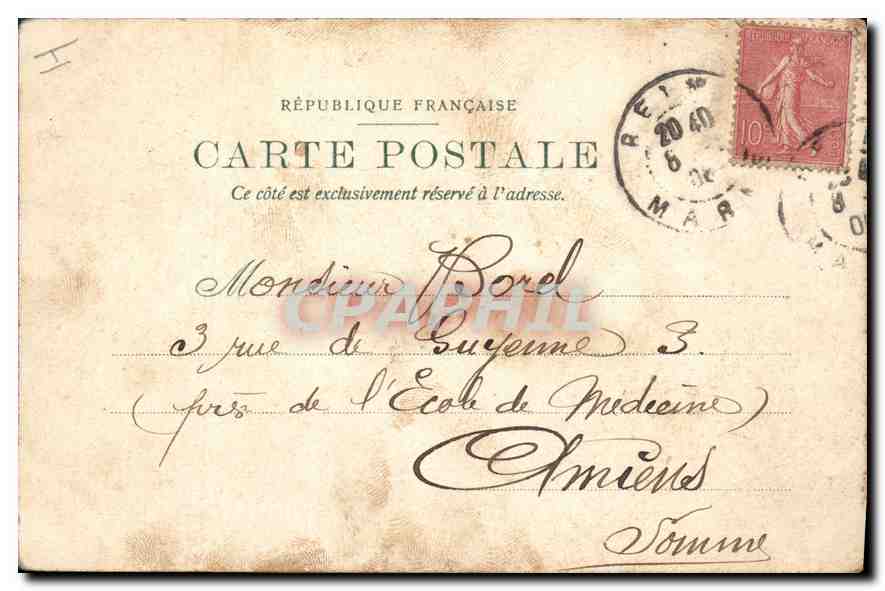 RÉPUBLIQUE FRANÇAISE
CARTE POSTALE
Ce côté est exclusivement réservé à l'adresse.
RÉPUBLIQUE FRANÇAISE
10c
20 40
6
MAR
Monsieur Bord
CPAPHIL
3 rue de Guyenne 3.
(près de l'École de Médecine)
Amiens
Somme